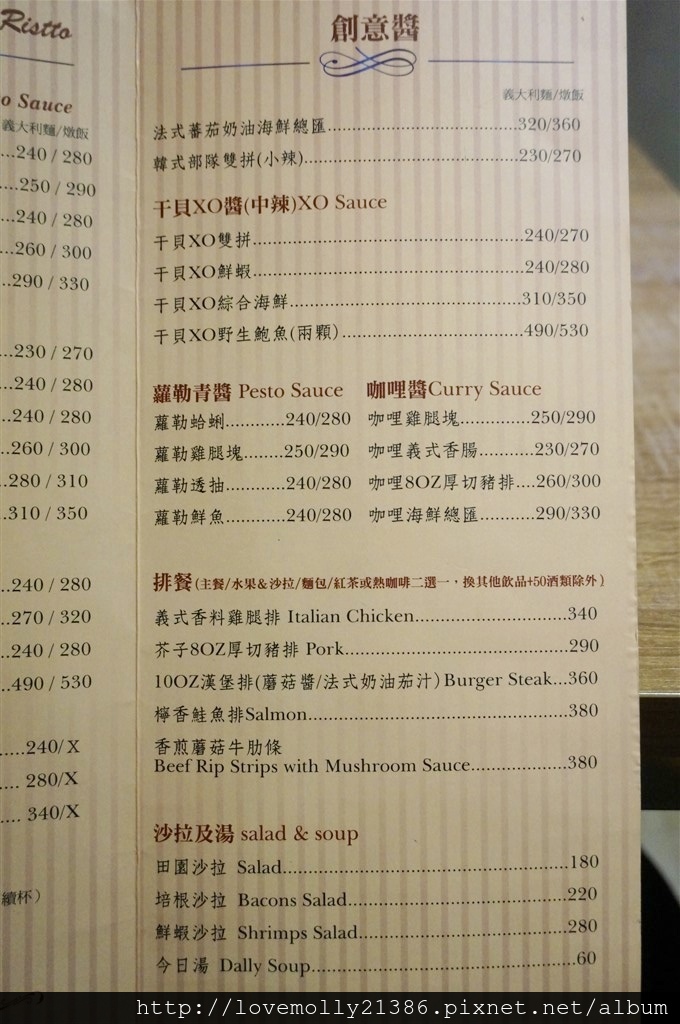 Ristto
o Sauce
義大利麵/燉飯
...240 / 280
....250 / 290
...240 / 280
...260 / 300
...290 / 330
...230 / 270
...240 / 280
...240 / 280
..260 / 300
..280 / 310
..310 / 350
..240 / 280
..270 / 320
..240 / 280
..490 / 530
.....240/ X
.... 280/X
.... 340/X
續杯）
創意醬
義大利麵/燉飯
法式蕃茄奶油海鮮總匯...............................320/360
韓式部隊雙拼(小辣)...................................230/270
干貝XO醬(中辣)XO Sauce
干貝XO雙拼............................................240/270
干貝XO鮮蝦............................................240/280
干貝XO綜合海鮮......................................310/350
干貝XO野生鮑魚(兩顆).............................490/530
蘿勒青醬 Pesto Sauce
蘿勒蛤蜊............240/280
蘿勒雞腿塊........250/290
蘿勒透抽............240/280
蘿勒鮮魚............240/280
咖哩醬Curry Sauce
咖哩雞腿塊..............250/290
咖哩義式香腸...........230/270
咖哩8OZ厚切豬排....260/300
咖哩海鮮總匯...........290/330
排餐(主餐/水果&沙拉/麵包/紅茶或熱咖啡二選一，換其他飲品+50酒類除外)
義式香料雞腿排 Italian Chicken.........................340
芥子8OZ厚切豬排 Pork....................................290
10OZ漢堡排(蘑菇醬/法式奶油茄汁)Burger Steak...360
檸香鮭魚排Salmon..........................................380
香煎蘑菇牛肋條
Beef Rip Strips with Mushroom Sauce................380
沙拉及湯 salad & soup
田園沙拉 Salad..............................................180
培根沙拉 Bacons Salad...................................220
鮮蝦沙拉 Shrimps Salad..................................280
今日湯 Dally Soup..........................................60
http://lovemolly21386.pixnet.net/album